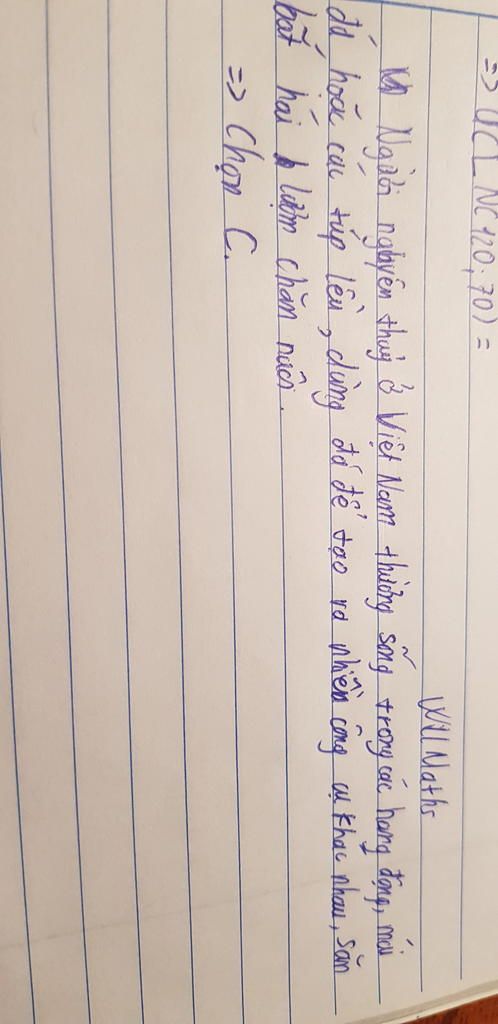 => ƯCLN(120; 70) =
Will Maths
Người nguyên thuỷ ở Việt Nam thường sống trong các hang động, mái
đá hoặc các túp lều, dùng đá để tạo ra nhiều công cụ khác nhau, săn
bắt hái lượm chăn nuôi.
=> Chọn C.